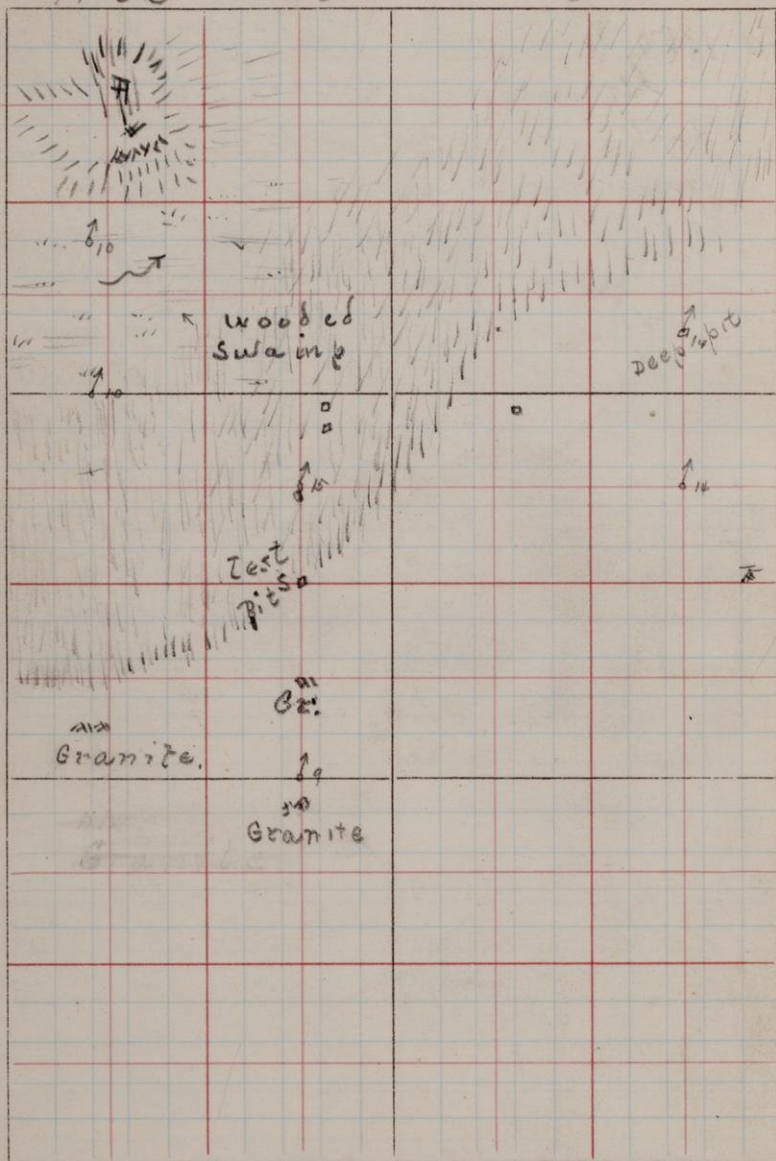 10
wooded
Swamp
10
Deep pit
14
15
14
Test
Pits
Gr.
Granite.
9
Granite